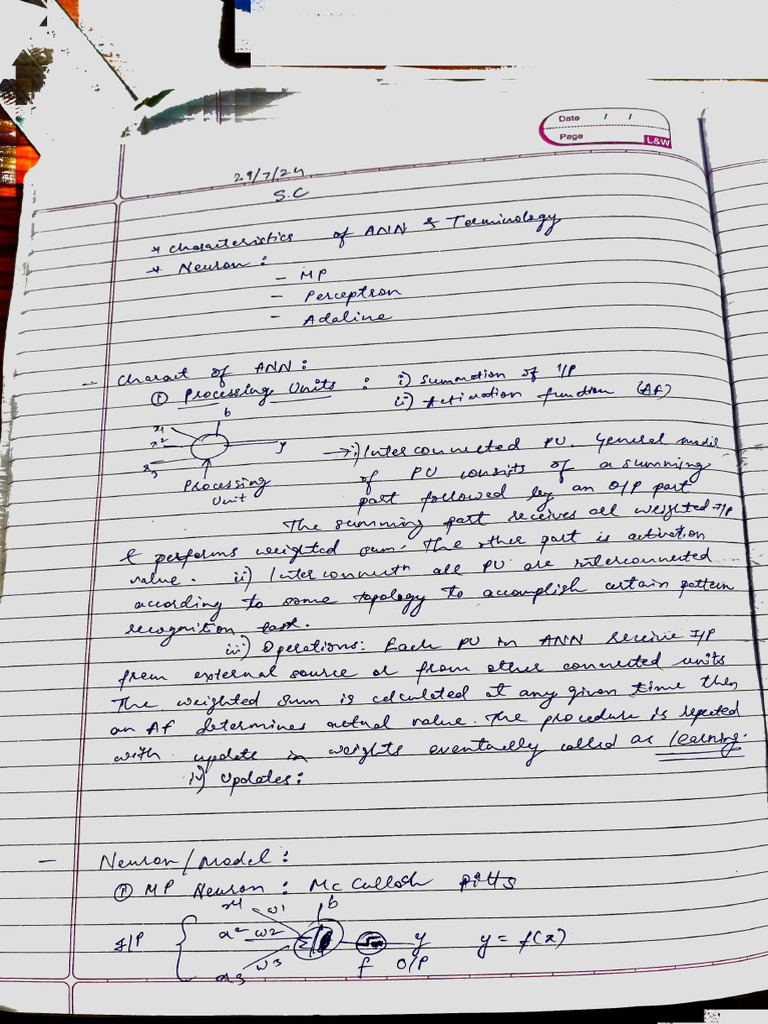 Date / /
Page
L&W
29/7/24
S.C
* Characteristics of ANN & Terminology
* Neuron:
- MP
- Perceptron
- Adaline
- Charact of ANN:
① Processing Units : i) Summation of I/P
ii) Activation function (AF)
b
x1
x2
x3
y
Processing
Unit
→ i) Inter connected PU. General model
of PU consists of a summing
part followed by an O/P part
The summing part receives all weighted I/P
& performs weighted sum. The other part is activation
value. ii) Inter connectn all PU are interconnected
according to some topology to accomplish certain pattern
recognition task.
iii) Operations: Each PU in ANN receive I/P
from external source or from other connected units
The weighted sum is calculated at any given time then
an AF determines actual value. The procedure is repeated
with update in weights eventually called as learning.
iv) Updates:
- Neuron/Model:
① MP Neuron: McCulloch pitts
x1 w1 b
I/P { x2 w2 Σ y y = f(x)
x3 w3 f O/P